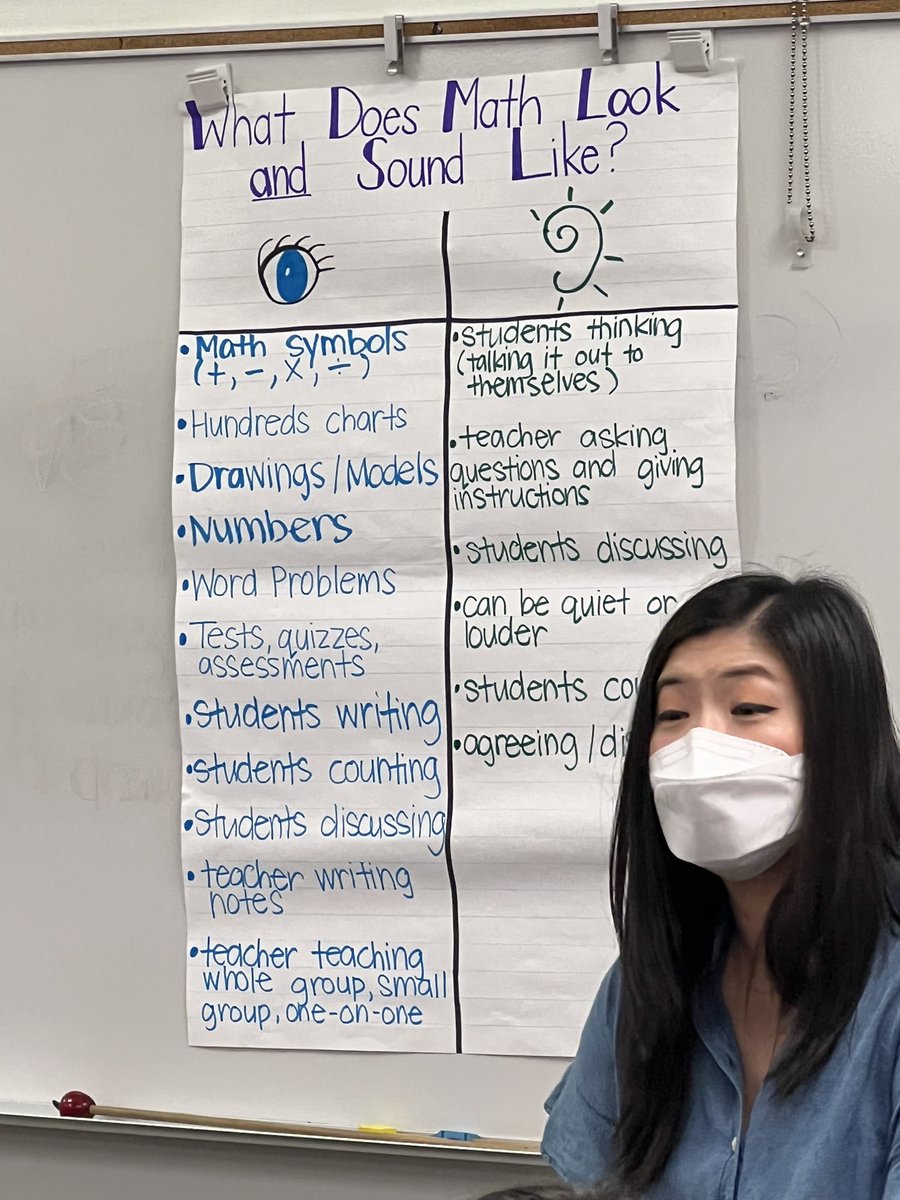 What Does Math Look
and Sound Like?
• Math symbols
(+, -, x, ÷)
• Hundreds charts
• Drawings/Models
• Numbers
• Word Problems
• Tests, quizzes,
assessments
• students writing
• students counting
• students discussing
• teacher writing
notes
• teacher teaching
whole group, small
group, one-on-one
• students thinking
(talking it out to
themselves)
• teacher asking
questions and giving
instructions
• students discussing
• can be quiet or
louder
• students
• agreeing/